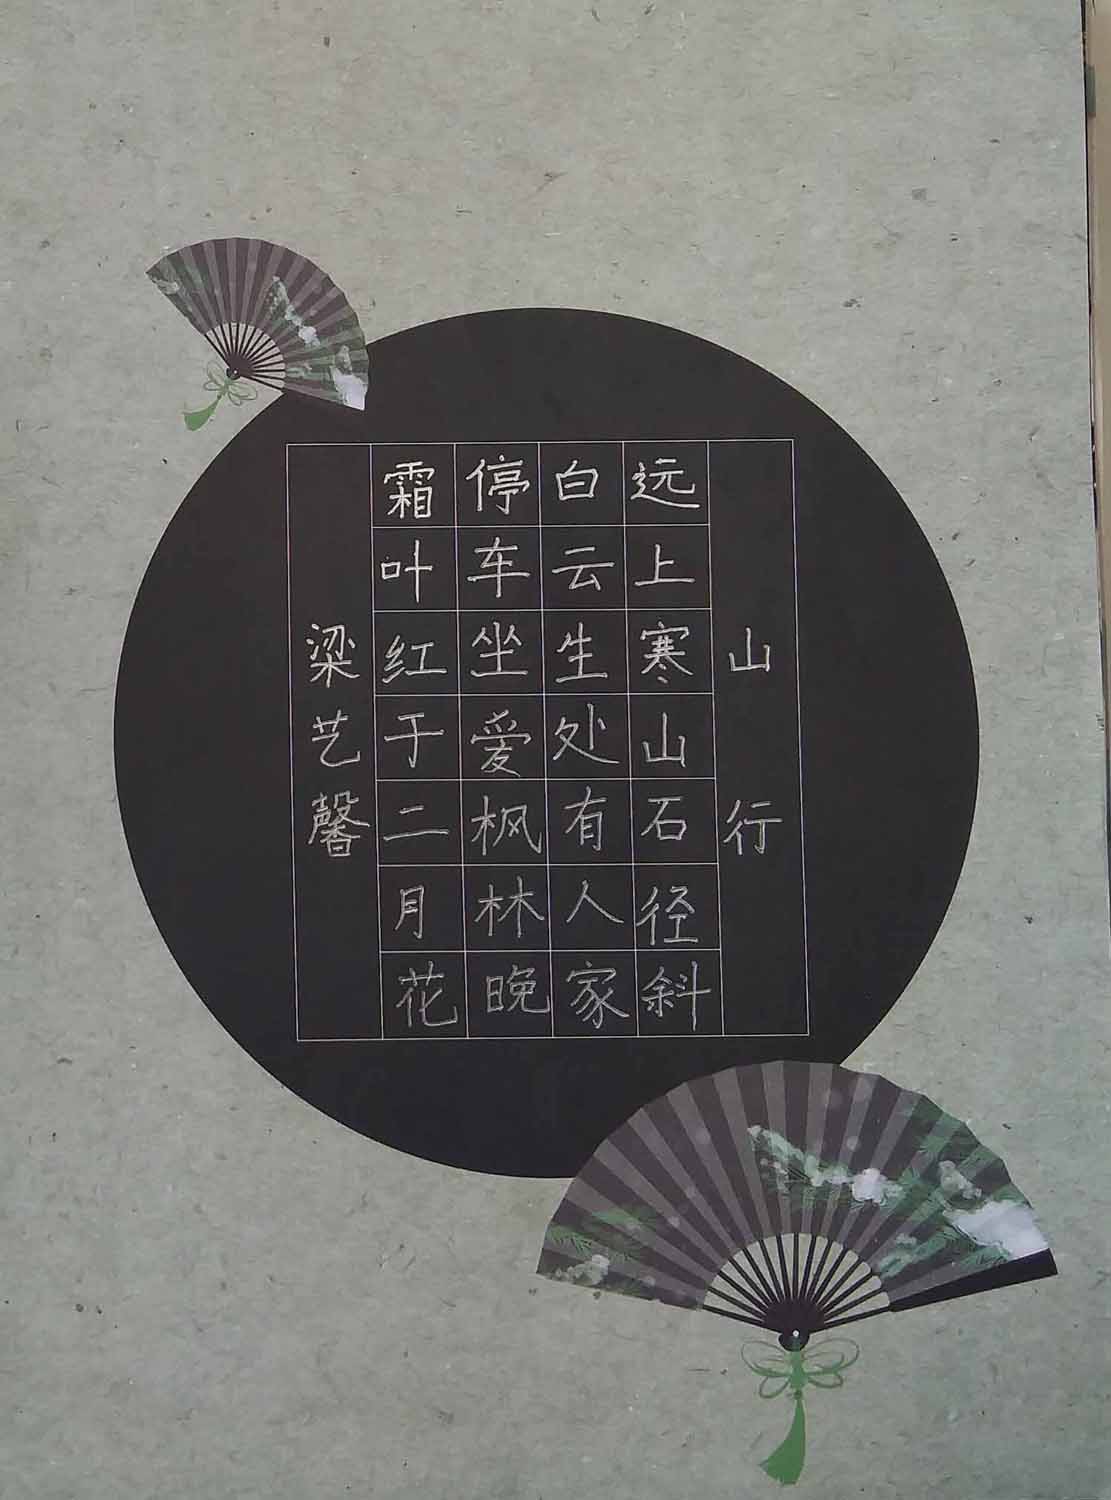 山行
远上寒山石径斜
白云生处有人家
停车坐爱枫林晚
霜叶红于二月花
梁艺馨